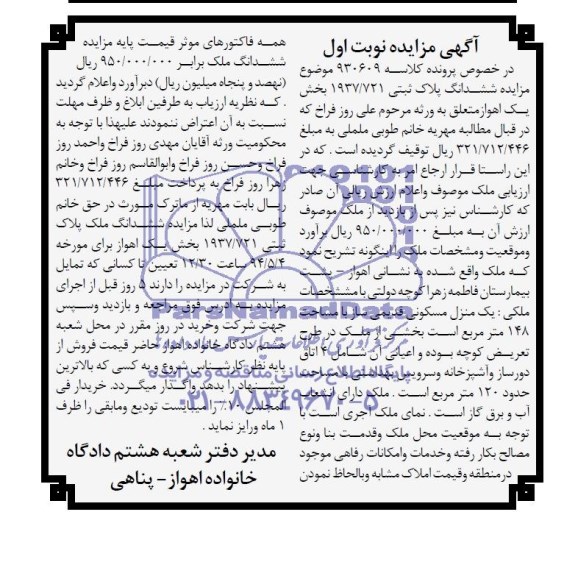 آگهی مزایده نوبت اول
در خصوص پرونده کلاسه ۹۳۰۶۰۹ موضوع
مزایده ششدانگ پلاک ثبتی ۱۹۳۷/۷۲۱ بخش
یک اهوازمتعلق به ورثه مرحوم علی روز فراخ که
در قبال مطالبه مهریه خانم طوبی ململی به مبلغ
۳۲۱/۷۱۲/۴۴۶ ریال توقیف گردیده است . که در
این راستا قرار ارجاع امر به کارشناسی جهت
ارزیابی ملک موصوف واعلام ارزش ریالی آن صادر
که کارشناس نیز پس از بازدید از ملک موصوف
ارزش آن به مبلغ ۹۵۰/۰۰۰/۰۰۰ ریال برآورد
وموقعیت ومشخصات ملک را اینگونه تشریح نمود
که ملک واقع شده به نشانی اهواز – پشت
بیمارستان فاطمه زهرا کوچه دولتی با مشخصات
ملکی : یک منزل مسکونی قدیمی ساز با مساحت
۱۴۸ متر مربع است بخشی از ملک در طرح
تعریض کوچه بوده و اعیانی آن شامل ۴ اتاق
دورساز وآشپزخانه وسرویس بهداشتی با مساحت
حدود ۱۲۰ متر مربع است . ملک دارای انشعاب
آب و برق گاز است . نمای ملک آجری است با
توجه به موقعیت محل ملک وقدمت بنا ونوع
مصالح بکار رفته وخدمات وامکانات رفاهی موجود
درمنطقه وقیمت املاک مشابه وبالحاظ نمودن
همه فاکتورهای موثر قیمت پایه مزایده
ششدانگ ملک برابر ۹۵۰/۰۰۰/۰۰۰ ریال
(نهصد و پنجاه میلیون ریال) دبرآورد واعلام گردید
. که نظریه ارزیاب به طرفین ابلاغ و ظرف مهلت
نسبت به آن اعتراض ننمودند علیهذا با توجه به
محکومیت ورثه آقایان مهدی روز فراخ واحمد روز
فراخ وحسین روز فراخ وابوالقاسم روز فراخ وخانم
زهرا روز فراخ به پرداخت مبلغ ۳۲۱/۷۱۲/۴۴۶
ریال بابت مهریه از ماترک مورث در حق خانم
طوبی ململی لذا مزایده ششدانگ ملک پلاک
ثبتی ۱۹۳۷/۷۲۱ بخش یک اهواز برای مورخه
۹۴/۵/۴ ساعت ۱۲/۳۰ تعیین تا کسانی که تمایل
به شرکت در مزایده را دارند ۵ روز قبل از اجرای
مزایده به آدرس فوق مراجعه و بازدید وسپس
جهت شرکت وخرید در روز مقرر در محل شعبه
هشتم دادگاه خانواده اهواز حاضر قیمت فروش از
پایه نظر کارشناسی شروع و به کسی که بالاترین
پیشنهاد را بدهد واگذار میگردد. خریدار فی
المجلس ۱۰٪ را میبایست تودیع ومابقی را ظرف
۱ ماه ورایز نماید .
مدیر دفتر شعبه هشتم دادگاه
خانواده اهواز – پناهی
ParsNamadData
پایگاه اطلاع رسانی مناقصه و مزایده
۰۲۱-۸۸۳۴۹۶۷۰-۵